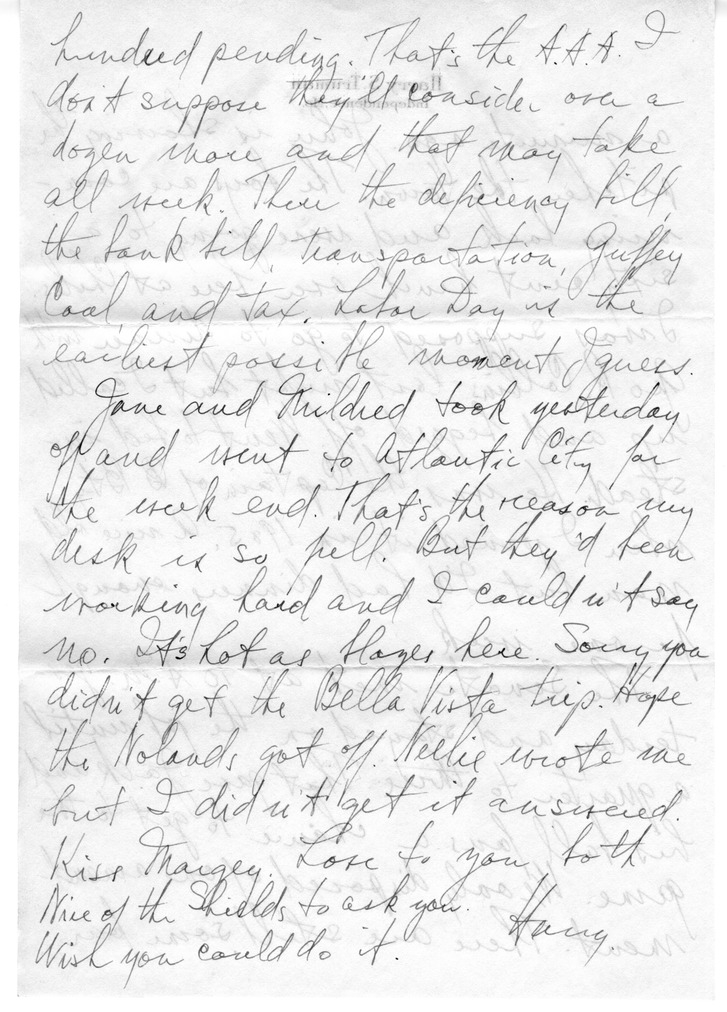 hundred pending. That's the A.A.A. I
don't suppose they'll consider over a
dozen more and that may take
all week. Then the deficiency bill,
the bank bill, transportation, Guffey
Coal, and tax. Labor Day is the
earliest possible moment I guess.
Jane and Mildred took yesterday
off and went to Atlantic City for
the week end. That's the reason my
desk is so full. But they'd been
working hard and I couldn't say
no. It's hot as blazes here. Sorry you
didn't get the Bella Vista trip. Hope
the Nolands got off. Nellie wrote me
but I didn't get it answered.
Kiss Margey. Love to you both
Nice of the Shields to ask you. Harry.
Wish you could do it.